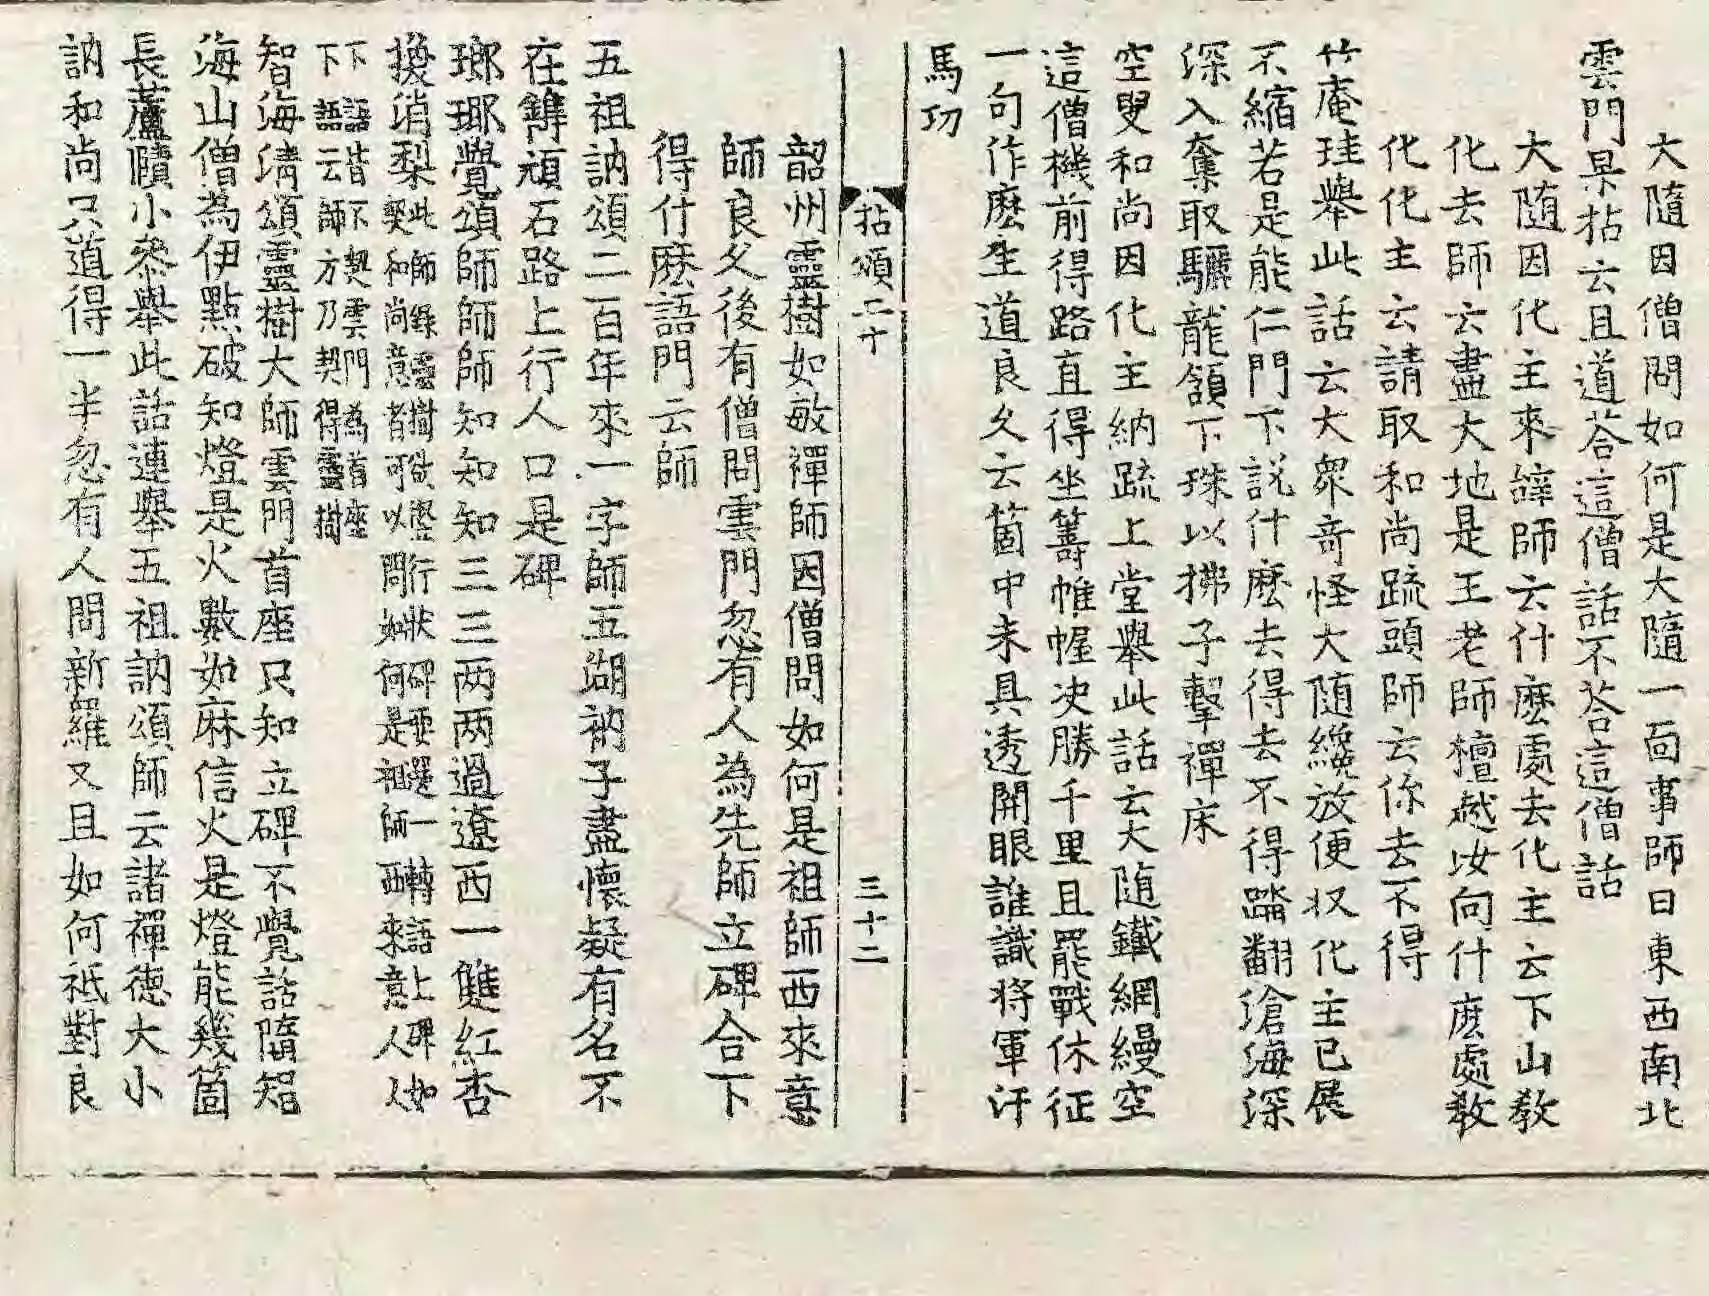 大隨因僧問如何是大隨一面事師曰東西南北
雲門杲拈云且道荅這僧話不荅這僧話
大随因化主來辭師云什麽處去化主云下山教
化去師云盡大地是王老師檀越汝向什麽處教
化化主云請取和尚䟽頭師云你去不得
竹庵珪舉此話云大衆竒怪大随纔放便收化主已展
不縮若是能仁門下説什麽去得去不得踏翻滄海深
深入奪取驪龍頷下珠以拂子擊禪床
空叟和尚因化主納䟽上堂舉此話云大随鐵網縵空
這僧機前得路直得坐籌帷幄决勝千里且罷戰休征
一句作麽生道良久云箇中未具透關眼誰識將軍汗
馬功
拈頌二十 三十二
韶州靈樹如敏禪師因僧問如何是祖師西來意
師良久後有僧問雲門忽有人為先師立碑合下
得什麽語門云師
五祖訥頌二百年來一字師五湖衲子盡懷疑有名不
在鐫頑石路上行人口是碑
瑯瑘覺頌師師師師知知知知三三三两两過遼西一雙紅杏
換消梨此師錄靈樹欲竪行狀碑要選一轉語上碑如
契和尚意者可以問如何是祖師西來意人人
下語皆不契雲門為首座
下語云師方乃契得靈樹
智海清頌靈樹大師雲門首座只知立碑不覺話墮智
海山僧為伊點破知燈是火數如麻信火是燈能幾箇
長蘆賾小叅舉此話連舉五祖訥頌師云諸禪德大小
訥和尚只道得一半忽有人問新羅又且如何祗對良